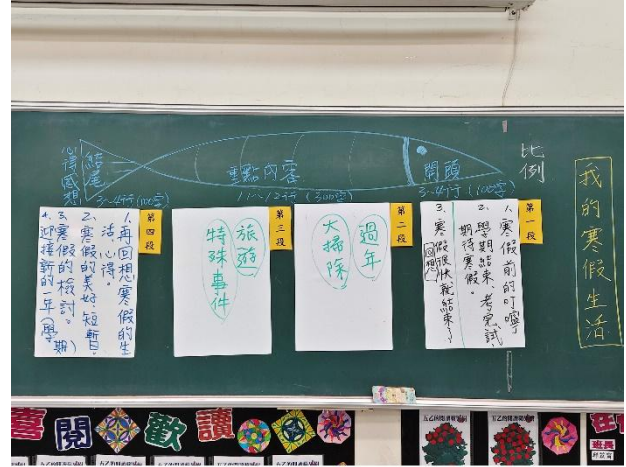 我的寒假生活
比例
開頭
3~4行(100字)
重點內容
11~12行(300字)
結尾
心得感想
3~4行(100字)
第一段
1、寒假前的叮嚀
2、學期結束、考完試、
期待寒假。
3、寒假很快就結束了
回想
第二段
過年
大掃除
第三段
旅遊
特殊事件
第四段
1、再回想寒假的生
活心得。
2、寒假的美好、短暫。
3、寒假的檢討。
4、迎接新的一年(學期)
喜閱歡讀
班長